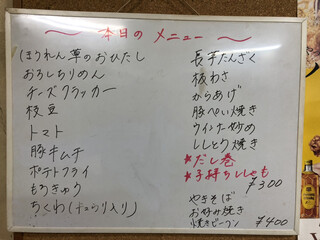 本日のメニュー
ほうれん草のおひたし
おろしちりめん
チーズクラッカー
枝豆
トマト
豚キムチ
ポテトフライ
もろきゅう
ちくわ(キュウリ入り)
長芋たんざく
板わさ
からあげ
豚ぺい焼き
ウインナー炒め
ししとう焼き
*だし巻
*子持ちししゃも
¥300
やきそば
お好み焼き
焼きビーフン
¥400